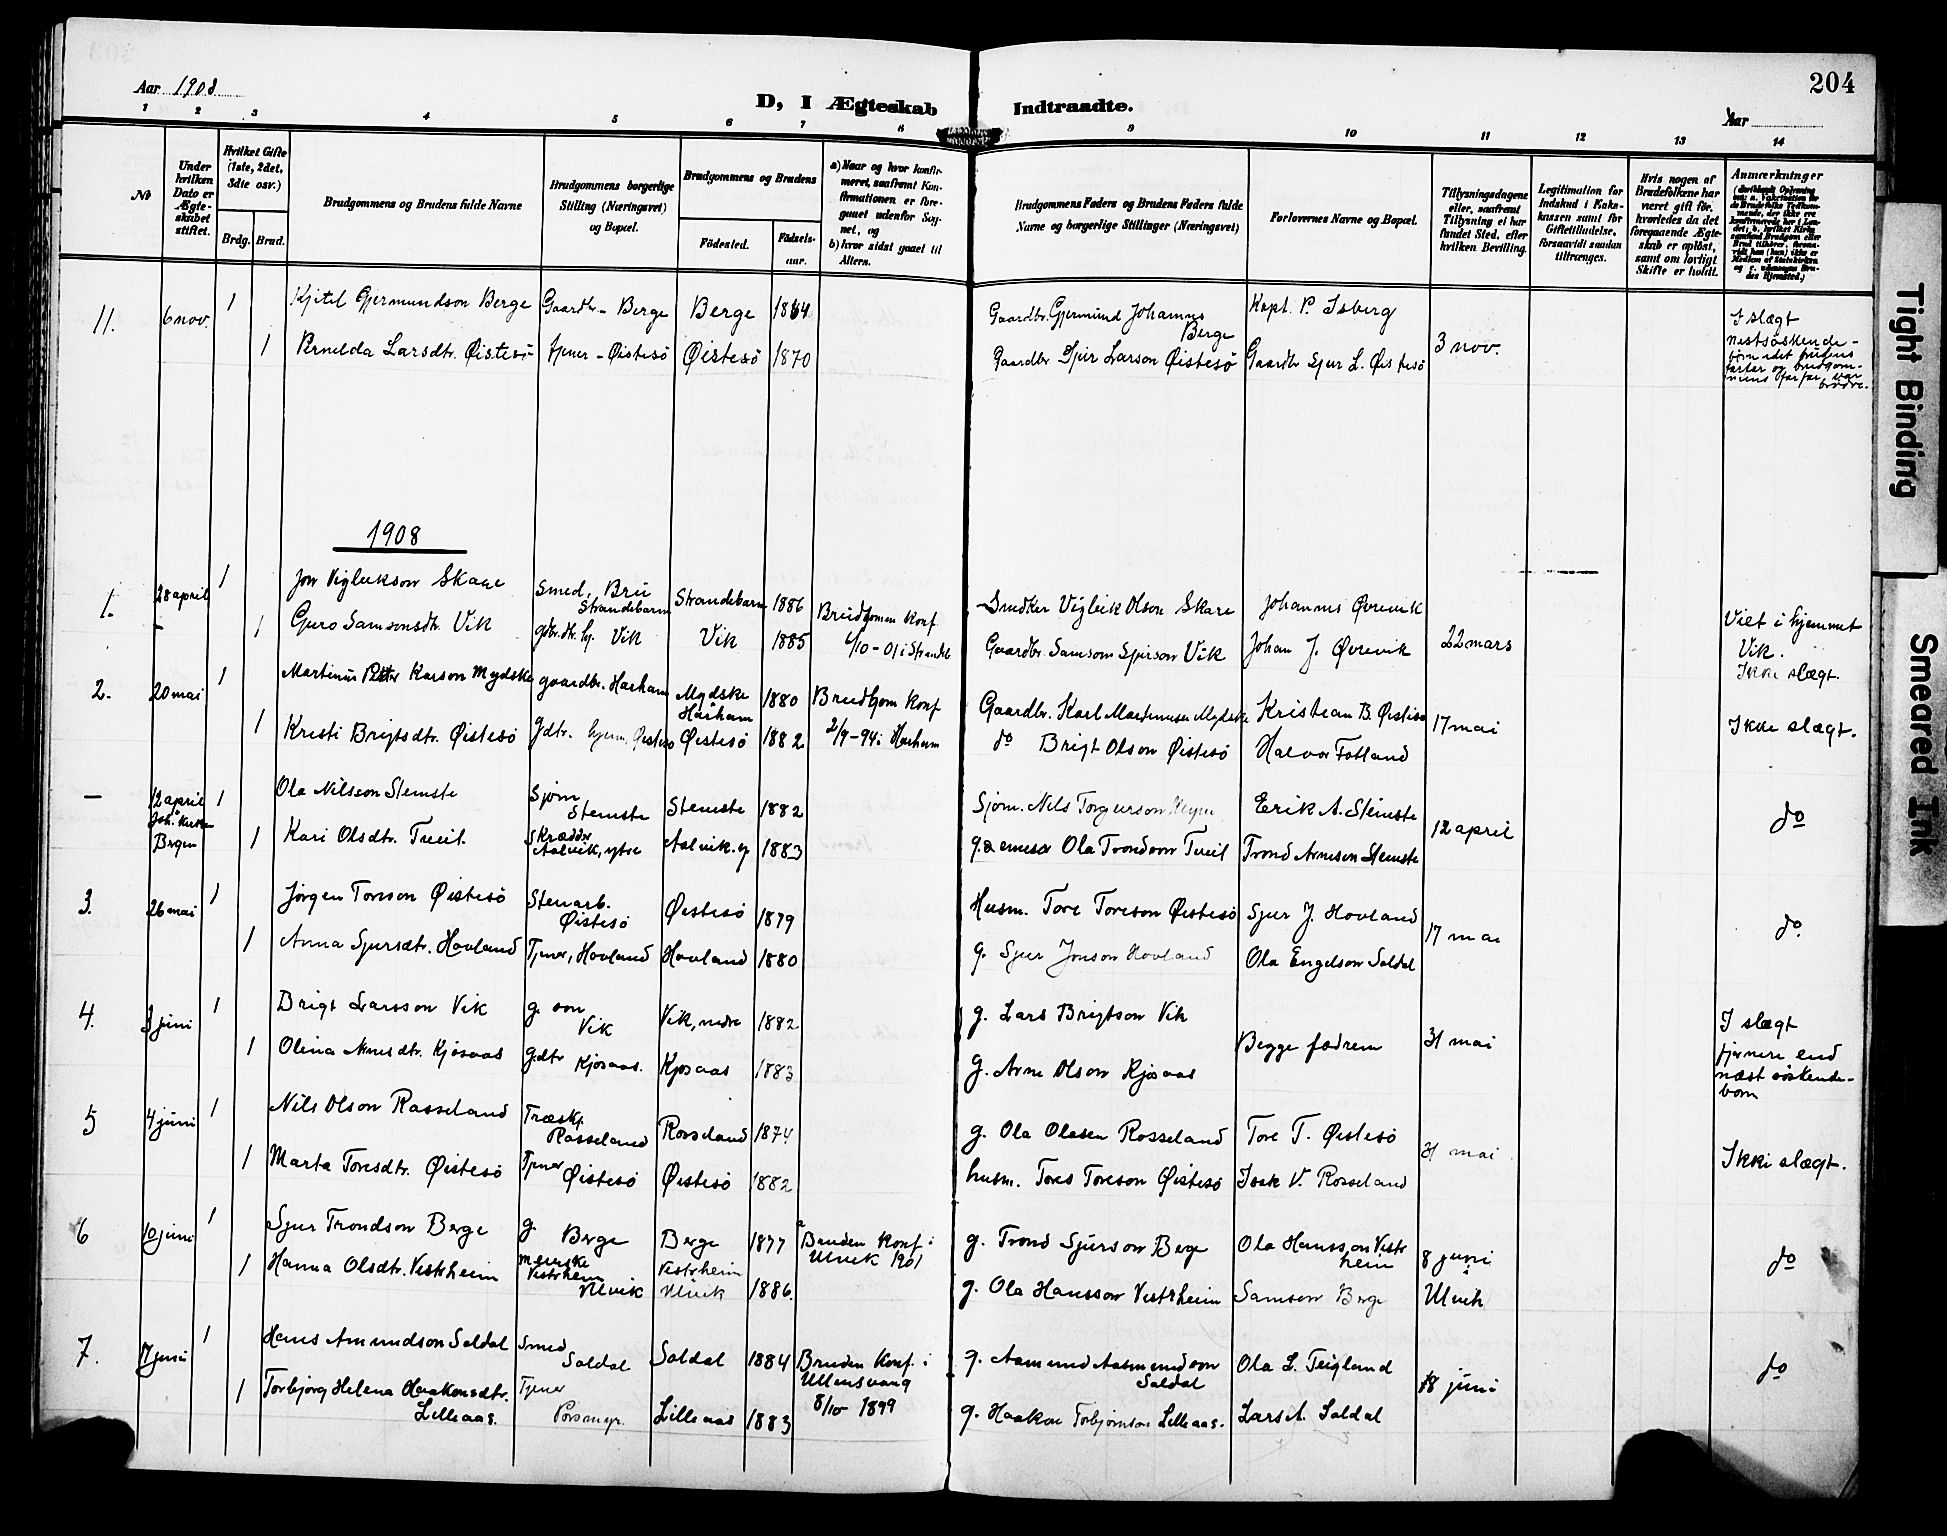 204
Aar 1908
D, I Ægteskab Indtraadte.
Aar
1 2 3 4 5 6 7 8 9 10 11 12 13 14
No
Under hvilken Dato er Ægteskabet stiftet.
Hvilket Gifte (1ste, 2det, 3die osv.)
Brdg. Brud.
Brudgommens og Brudens fulde Navne
Brudgommens borgerlige Stilling (Næringsvei) og Bopæl.
Brudgommens og Brudens
Fødested. Fødselsaar.
a) Naar og hvor konfirmeret, saafremt Konfirmationen er foregaaet udenfor Sognet, og
b) hvor sidst gaaet til Alters.
Brudgommens Faders og Brudens Faders fulde Navne og borgerlige Stillinger (Næringsvei)
Forlovernes Navne og Bopæl.
Tillysningsdagene eller, saafremt Tillysning ei har fundet Sted, efter hvilken Bevilling.
Legitimation for Indskud i Enkekassen samt for Giftetilladelse, forsaavidt saadan tiltrænges.
Hvis nogen af Brudefolkene har været gift før, hvorledes da det foregaaende Ægteskab er opløst, samt om lovligt Skifte er holdt.
Anmærkninger
11. 6 nov. 1 Kjitil Gjermundson Berge Gaardbr. - Berge Berge 1864 Gaardbr. Gjermund Johannes Berge Kapt. P. Isberg 3 nov. I slægt
1 Pernilda Larsdtr. Øistesö tjener - Øistesö Øistesö 1870 Gaardbr Sjur Larson Øistesö Gaardbr Sjur L. Øistesö
nestsöskende-
börn idet brudens
farfar og brudgom-
mens farfar var
brödre.
1908
1. 28 april 1 Jon Vigleikson Skare Smed, Bru Strandebarm Strandebarm 1886 Brudgomen konf. Snedker Vigleik Olson Skare Johannes Øvrevik 22 mars Viet i hjemmet
1 Guro Samsonsdtr. Vik gdtr. hj. Vik Vik 1885 6/10 - 01 i Strandeb Gaardbr. Samson Sjurson Vik Johan J. Øvrevik Vik.
Ikke slægt.
2. 20 mai 1 Martinus Karson Mydske gaardbr. Harham Mydske Harham 1880 Brudgom konf. Gaardbr. Karl Martinusen Mydske Kristian B. Øistesö 17 mai Ikke slægt.
1 Kristi Brigtsdtr. Øistesö gdtr. hjem. Øistesö Øistesö 1882 2/9 - 94 i Harham do Brigt Olson Øistesö Halvor Fosland
— 12 april Joh. kirken Bergen 1 Ola Nilsson Stemste Sjöm Stemste Stemste 1882 Sjöm. Nils Torgerson Erik A. Steinste 12 april do
1 Kari Olsdtr. Treil. Skrædder Aalvik, ytre Aalvik. y 1883 Ola Trondson Treil Trond Arnesen Stemste
3. 26 mai 1 Jörgen Toreson Øistesö Stenarb. Øistesö Øistesö 1879 Husm. Tore Toreson Øistesö Sjur J. Hovland 17 mai do.
1 Anna Sjursdtr. Hovland Tjener, Hovland Hovland 1880 g. Sjur Jonson Hovland Ola Engelson Soldal
4. 3 juni 1 Brigt Larsson Vik g. son Vik Vik, nedre 1882 g. Lars Brigtson Vik Begge fædrene 31 mai I slægt
1 Olina Arnesdtr. Kjösaas gdtr Kjösaas. Kjösaas 1883 g. Arne Olson Kjösaas
fjernere end
næst söskende-
börn
5 4 juni 1 Nils Olson Rosseland Træskj. Rosseland Rosseland 1874 g. Ola Olesen Rosseland Tore T. Øistesö 31 mai Ikke slægt.
1 Marta Toresdtr. Øistesö Tjener Øistesö Øistesö 1882 husm. Tores Toreson Øistesö Isak V. Rosseland
6 10 juni 1 Sjur Trondson Berge g. Berge Berge 1877 Bruden konf. i Ulvik 1901 g. Trond Sjurson Berge Ola Hansson Vestrheim 8 juni i Ulvik do
1 Hanna Olsdtr. Vestrheim Vestrheim Ulvik Vestrheim Ulvik 1886. g. Ola Hansson Vestrheim Samson Berge
7. 17 juni 1 Hans Amundson Soldal Smed Soldal Soldal 1884 Bruden konf. i Ullensvang g. Aamund Aasmundson Soldal Ola L. Teigland 18 juni do
1 Torbjörg Helena Haakonsdtr. Lilleaas. Tjener Porsmyr. Lilleaas 1883 8/10 1899 g. Haakon Torbjörnson Lilleaas. Lars A. Soldal
Tight Binding
Smeared Ink